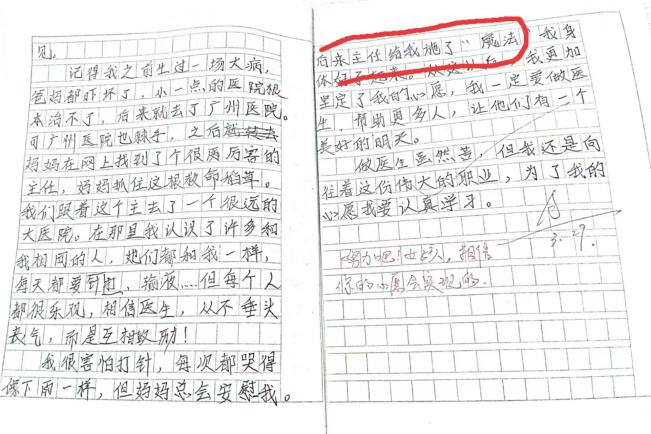 见。
记得我之前生过一场大病,
爸妈都吓坏了,小一点的医院根
本治不了,后来就去了广州医院。
可广州医院也棘手,之后就
妈妈在网上找到了个很厉厉害的
主任,妈妈抓住这根救命稻草。
我们跟着这个主去了一个很远的
大医院。在那里我认识了许多和
我相同的人,她们都和我一样,
每天都要打针、输液……但每个人
都很乐观,相信医生,从不垂头
丧气,而是互相鼓励!
我很害怕打针,每次都哭得
像下雨一样,但妈妈总会安慰我。
后来主任给我施了“魔法”,我身
体好了起来。从这以后,我更加
坚定了我的心愿,我一定要做医
生,帮助更多人,让他们有一个
美好的明天。
做医生虽然苦,但我还是向
往着这份伟大的职业,为了我的
心愿我要认真学习。
3.29.
努力吧!女孩,相信
你的心愿会实现的.